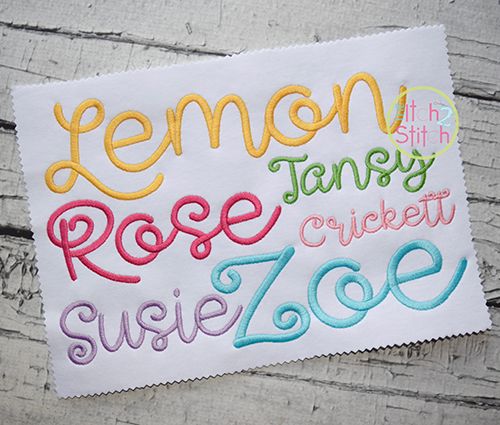 Lemon
Itch 2
Stitch
Tansy
Rose
Crickett
Zoe
Susie